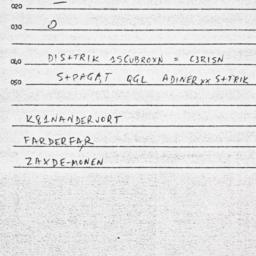 020 —
030 O
040 DIS+TRIK 1SCUBROXN = C3RISN
050 S+PAGAT QGL ADINERXX S+TRIK
K81NANDERVORT
FARDERFAR
ZAXDE-MONEN